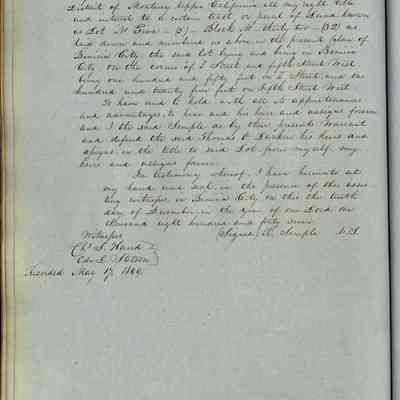 District of Monterey Upper California all my right title
and interest to a certain tract or parcel of Land known
as Lot No Five - (5) - Block No thirty two - (32) as
laid down and numbered as above in the present plan of
Benicia City, the said lot lying and being in Benicia
City on the corner of I Street and fifth Street West
being one hundred and fifty feet on I Street and one
hundred and twenty five feet on fifth Street West
To have and to hold with all its appurtenances
and advantages, to him and his heirs and assigns forever
and I the said Semple do by these presents Warrant
and defend the said Thomas O. Larkin his heirs and
assigns, in the title to said Lot, from myself my
heirs and assigns forever.
In testimony whereof, I have hereunto set
my hand and seal, in the presence of the
witnesses in Benicia City on this the tenth
day of December, in the year of our Lord one
thousand eight hundred and forty seven
Witnesses Signed R. Semple
Chs S. Hand
Recorded May 17, 1849.